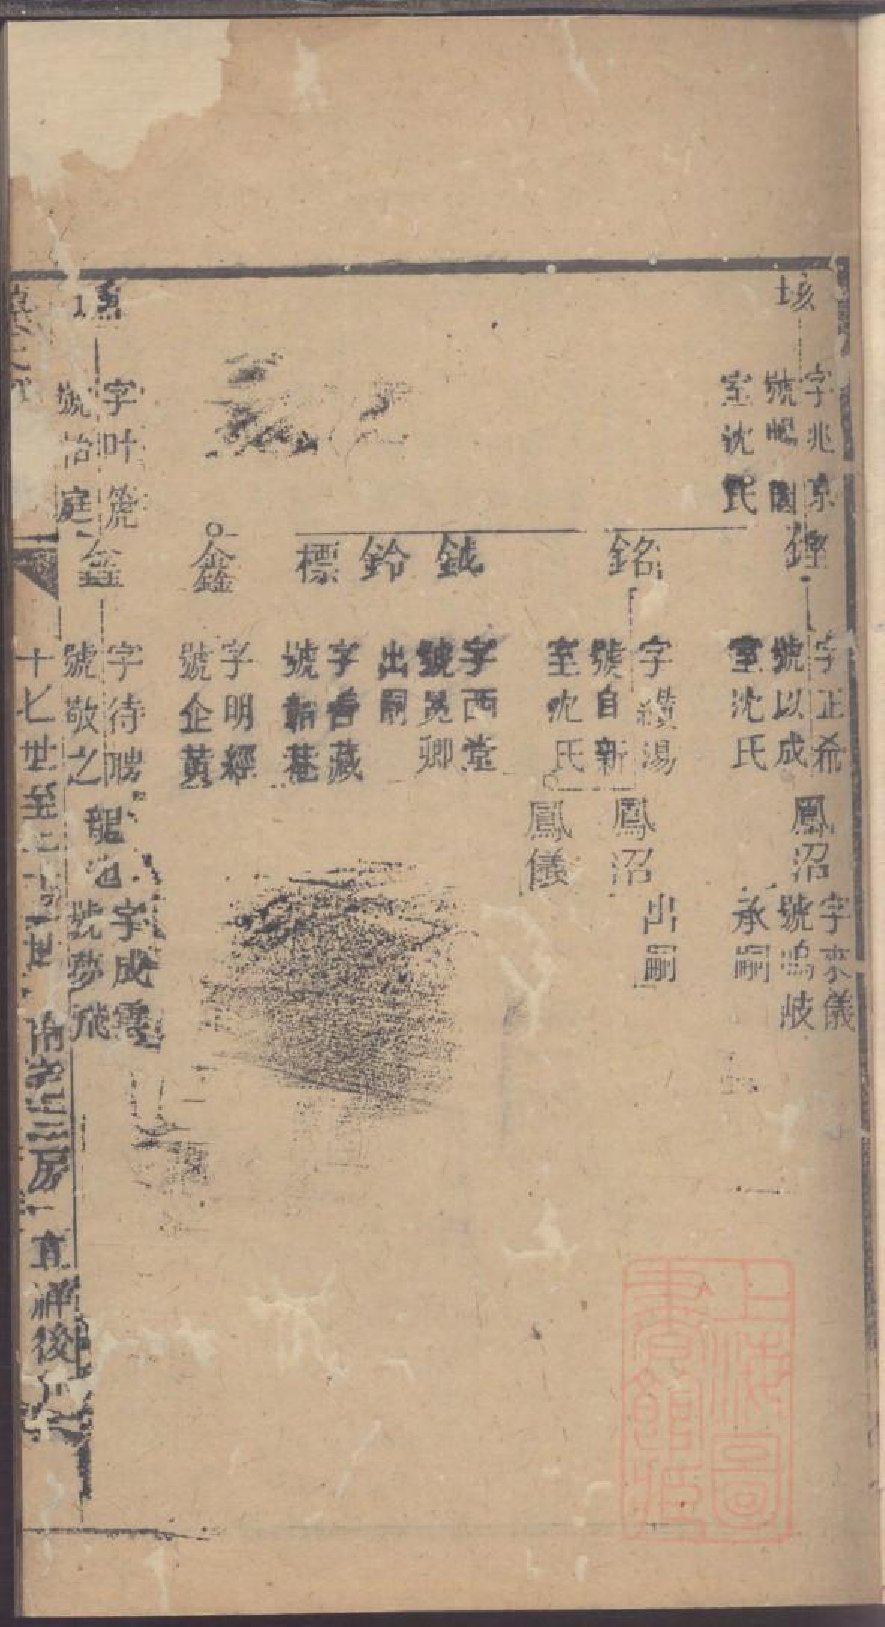 垓
字兆京
號鳴園
室沈氏
鏗
字正希
號以成
室沈氏
鳳沼
字來儀
號鳴岐
承嗣
銘
字纘湯
號自新
室沈氏
鳳沼
出嗣
鳳儀
鉞
字西堂
號冕卿
鈴
出嗣
標
字書藏
號韜菴
鑫
字明經
號企黃
字叶箎
號怡庭
鑫
字待聘
號敬之
龍
字成雲
號夢飛
十七世至二十世
三房
祥後
上海圖書館藏